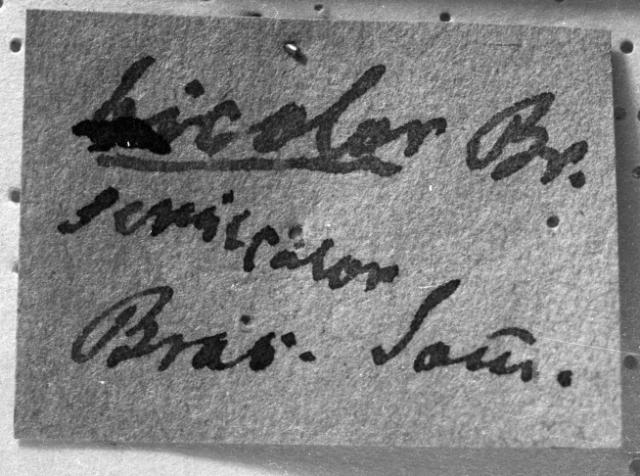 bicolor Br.
semicolor
Bras. Som̄.